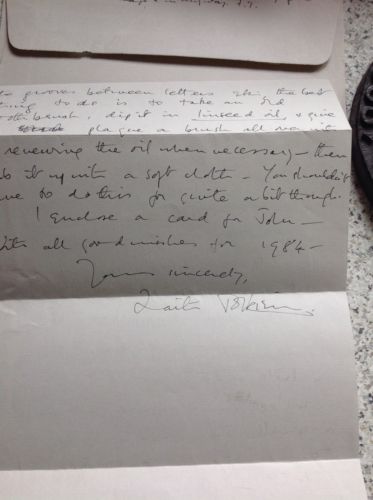 grooves between letters etc, the best
thing to do is to take an old
toothbrush, dip it in linseed oil & give
plaque a brush all over with
renewing the oil when necessary — then
it up with a soft cloth — You shouldn't
have to do this for quite a bit though.
I enclose a card for John —
With all good wishes for 1984 —
Yours sincerely,